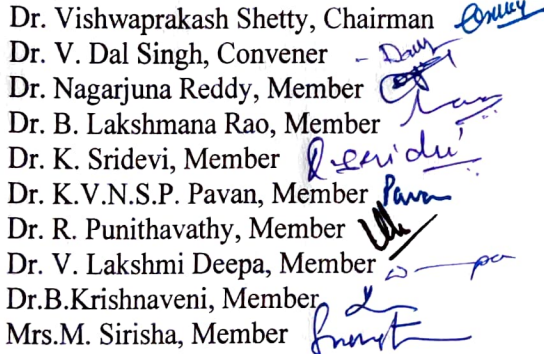 Dr. Vishwaprakash Shetty, Chairman
Dr. V. Dal Singh, Convener -
Dr. Nagarjuna Reddy, Member
Dr. B. Lakshmana Rao, Member
Dr. K. Sridevi, Member
Dr. K.V.N.S.P. Pavan, Member Pavan
Dr. R. Punithavathy, Member
Dr. V. Lakshmi Deepa, Member
Dr.B.Krishnaveni, Member
Mrs.M. Sirisha, Member